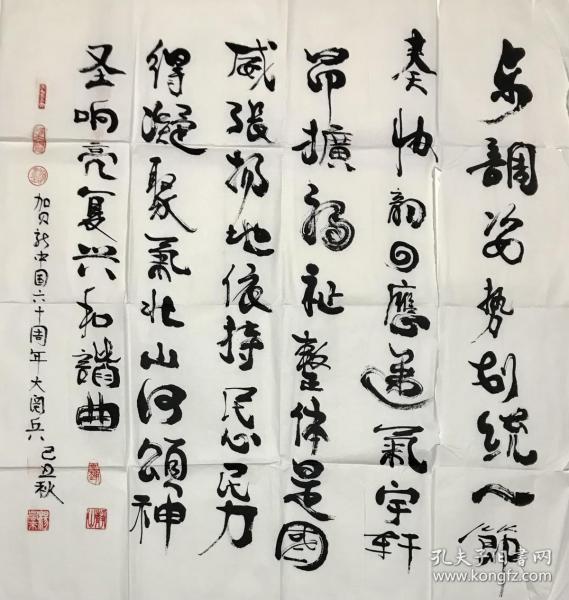 步調姿势划统一節
奏协韵回應递氣宇轩
昂擴福祉整体是國
威張扬地依持民心民力
得凝聚氣壮山河頌神
圣响亮复兴和諧曲
贺新中国六十周年大阅兵 己丑秋
孔夫子旧书网
www.kongfz.com